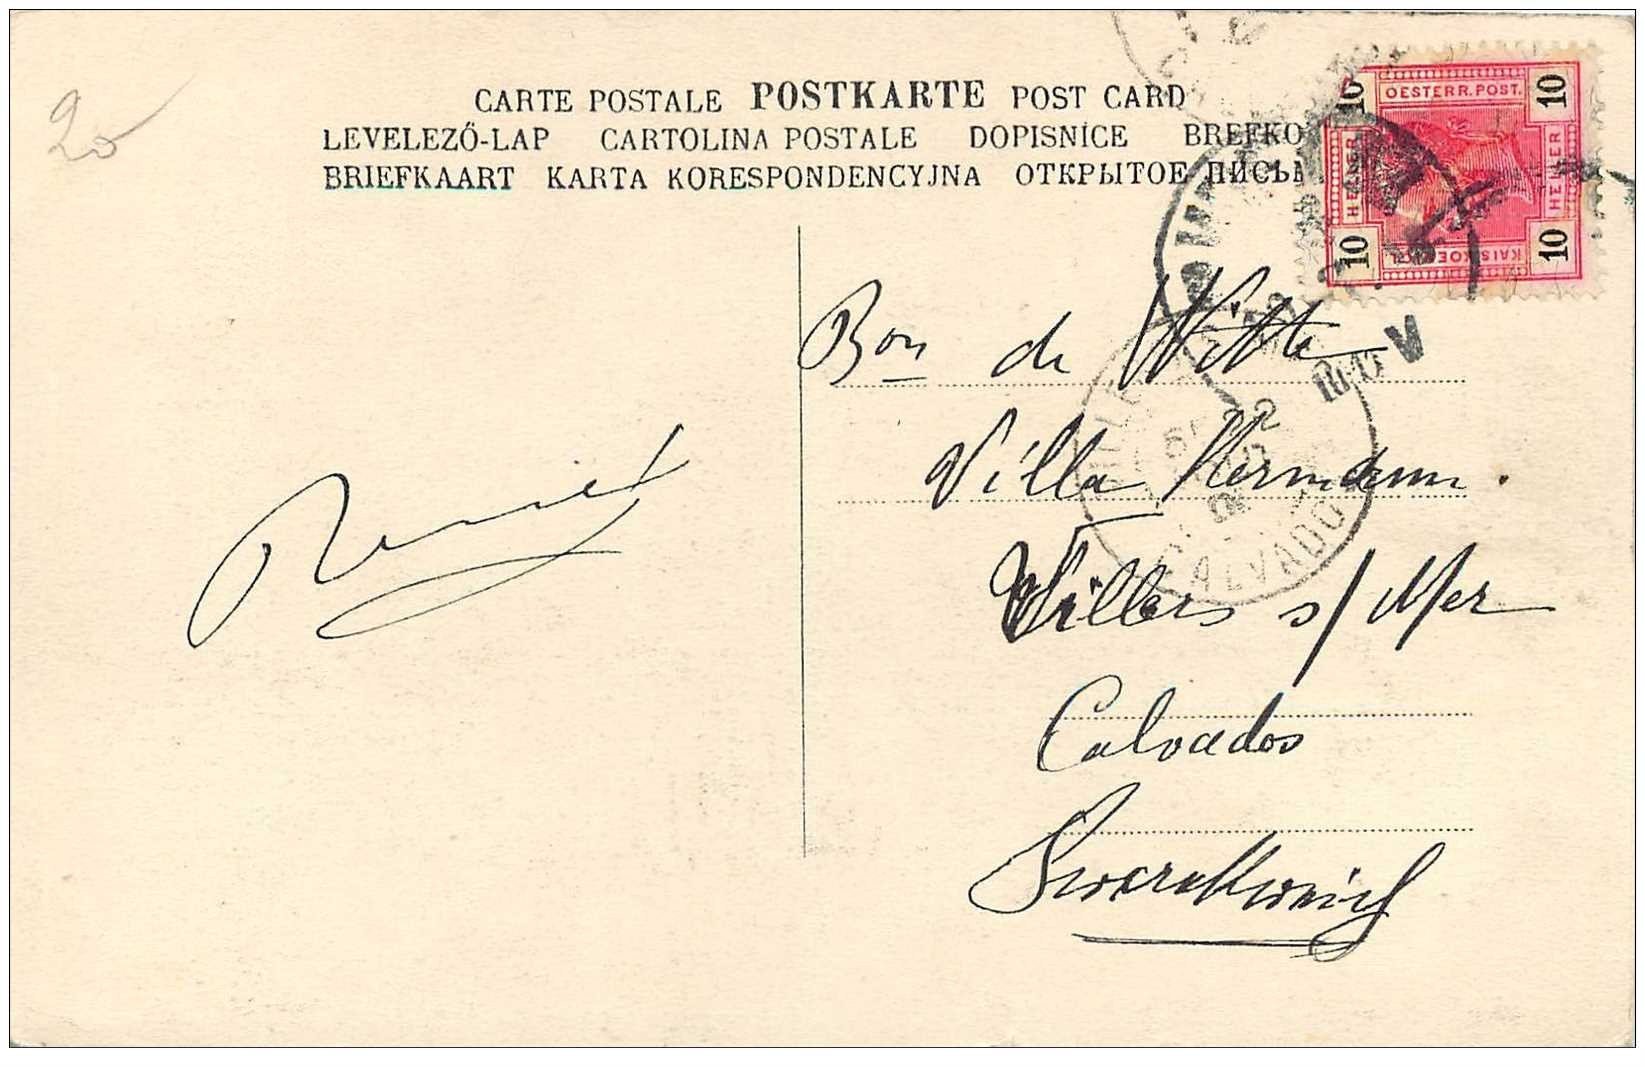 20
CARTE POSTALE POSTKARTE POST CARD
LEVELEZŐ-LAP CARTOLINA POSTALE DOPISNICE BREFKO
BRIEFKAART KARTA KORESPONDENCYJNA ОТКРЫТОЕ ПИСЬМ
10 OESTERR. POST. 10
HELLER HELLER
10 KAIS. KOE 10
Bon de Witte
Villa Hermann.
Villers s/ Mer
Calvados
CALVADOS